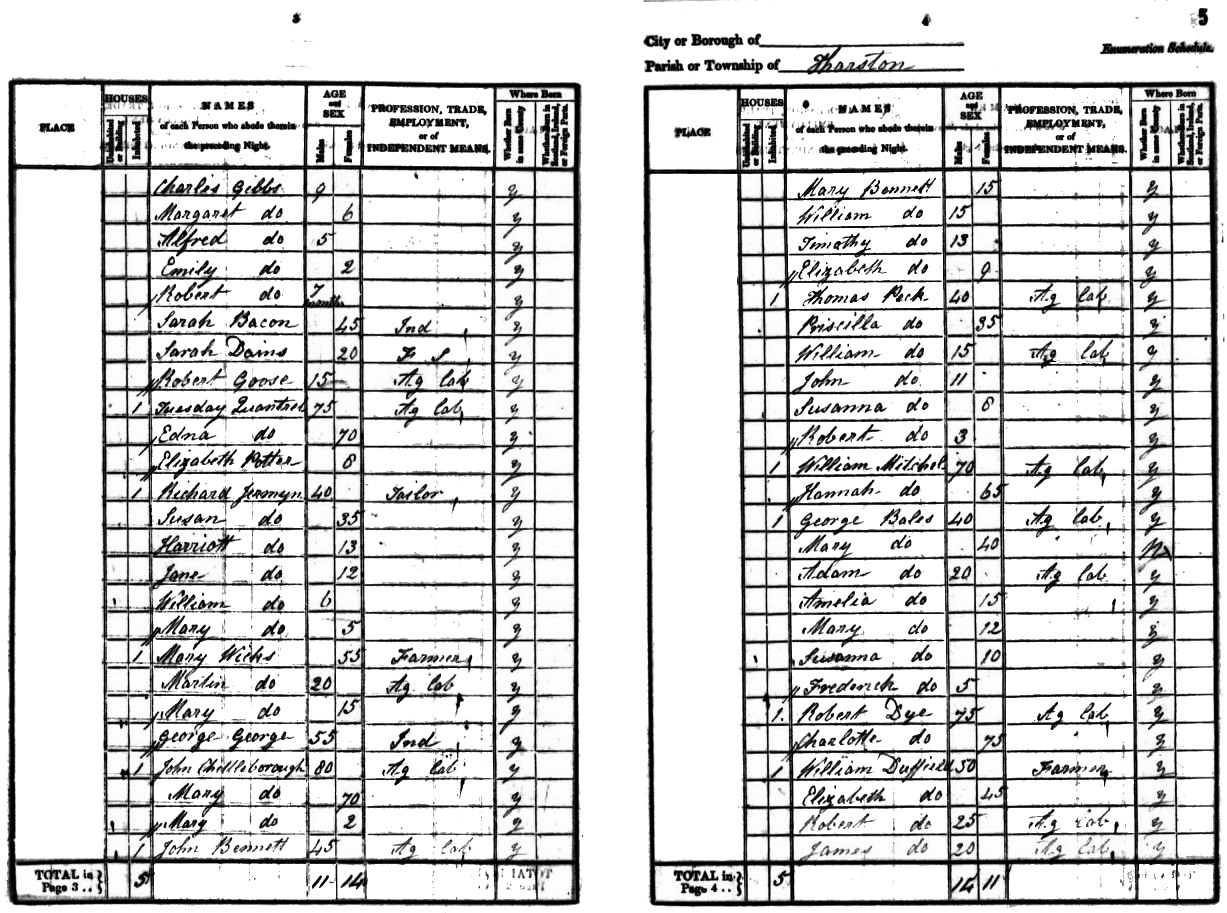 3
PLACE
HOUSES
Uninhabited or Building
Inhabited
NAMES
of each Person who abode therein
the preceding Night.
AGE and SEX
Males
Females
PROFESSION, TRADE,
EMPLOYMENT,
or of
INDEPENDENT MEANS.
Where Born
Whether Born in same County
Whether Born in Scotland, Ireland, or Foreign Parts.
Charles Gibbs 9 y
Margaret do 6 y
Alfred do 5 y
Emily do 2 y
Robert do 7 months y
Sarah Bacon 45 Ind y
Sarah Dains 20 F S y
Robert Goose 15 Ag lab y
1 Tuesday Quantrel 75 Ag lab y
Edna do 70 y
Elizabeth Potter 8 y
1 Richard Jermyn 40 Tailor y
Susan do 35 y
Harriott do 13 y
Jane do 12 y
William do 6 y
Mary do 5 y
1 Mary Wicks 55 Farmer y
Martin do 20 Ag lab y
Mary do 15 y
George George 55 Ind y
1 John Chittleborough 80 Ag lab y
Mary do 70 y
Mary do 2 y
1 John Bennett 45 Ag lab y
TOTAL in Page 3 .. } 5 11 14
4
5
City or Borough of
Enumeration Schedule.
Parish or Township of Tharston
PLACE
HOUSES
Uninhabited or Building
Inhabited
NAMES
of each Person who abode therein
the preceding Night.
AGE and SEX
Males
Females
PROFESSION, TRADE,
EMPLOYMENT,
or of
INDEPENDENT MEANS.
Where Born
Whether Born in same County
Whether Born in Scotland, Ireland, or Foreign Parts.
Mary Bennett 15 y
William do 15 y
Timothy do 13 y
Elizabeth do 9 y
1 Thomas Peck 40 Ag lab y
Priscilla do 35 y
William do 15 Ag lab y
John do 11 y
Susanna do 8 y
Robert do 3 y
1 William Mitchel 70 Ag lab y
Hannah do 65 y
1 George Bales 40 Ag lab y
Mary do 40 N
Adam do 20 Ag lab y
Amelia do 15 y
Mary do 12 y
Susanna do 10 y
Frederick do 5 y
1 Robert Dye 75 Ag lab y
Charlotte do 75 y
1 William Duffield 50 Farmer y
Elizabeth do 45 y
Robert do 25 Ag lab y
James do 20 Ag lab y
TOTAL in Page 4 .. } 5 14 11